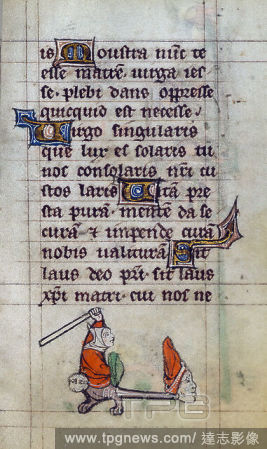 is Moustra nunc te
esse matrem · virga ies
se · plebi dans oppresse
quicquid est necesse ·
Virgo singularis
que lux es solaris tu
nos consolaris nri cu
stos laris Vitā pre
sta purā · mentē da se
curā ⁊ inpende curā
nobis ualiturā Sit
laus deo pri · sit laus
xpi matri · cui nos ne
TPG
www.tpgnews.com / 達志影像